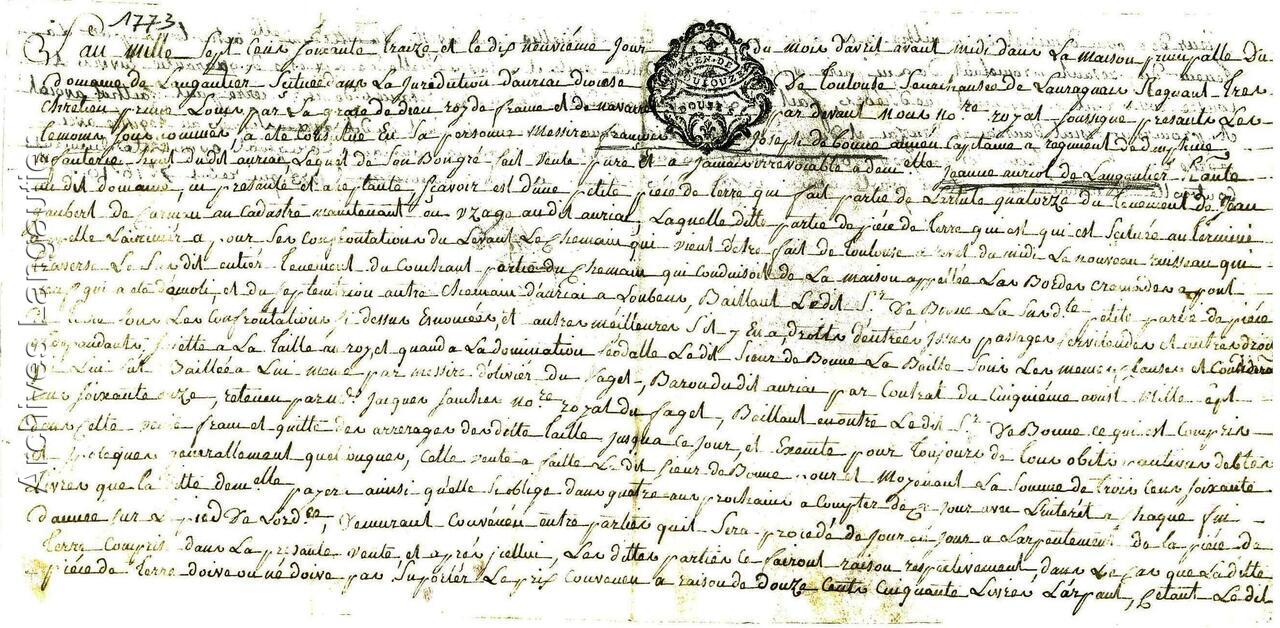 1773
L'an mille sept cens soixante traize, et le dix neuvième jour du mois d'avril avant midi dans la maison principalle du
domaine de Langautier scituée dans la juridition d'auriac dioceze de toulouse senechaussée de Lauragais Regnant tres
chretien prince Louis par la grace de dieu roy de france et de navarre par devant nous no.re royal soussigné presants les
temoins bas només a été constitué en sa personne Messire françois Joseph de bonne antien capitaine a regiment de dauphiné
infanterie, habit du dit auriac Lequel de son bongré fait vente pure et a jamais irrevocable a dem.elle jeanne auriol de Langautier habitante
au dit domaine, ici presante et aceptante, scavoir est d'une petite piece de terre qui fait partie de l'article quatorze du tenement de jean
jaubert de au cadastre maintenant en uzage au dit auriac, Laquelle ditte partie de piece de terre qui est qui est scituée au terminé
appelle a pour ses confrontations du Levant Le chemain qui vient detre fait de toulouse a revel du midi Le nouveau ruisseau qui
traverse Le susdit entier tenement du couchant partie du chemain qui conduisoit de La maison appellée Las Bordes cremades a pont
qui a eté demoli, et du septemtrion autre chemain d'auriac a Loubens, Baillant Ledit S.r De Bonne La susd.e petite partie de piece
sous Les confrontations si dessus enoncées, et autres meilleures s'il y en a, droits d'entrées, issus, passages, servitudes et autres droits
sujette a La taille au roy et quand a La domination feodalle Ledit sieur de Bonne La Baille sous Les memes clauses et
Lui fut Baillée a Lui meme par messire d'olivier du faget, Baron du dit auriac par contrat du cinquième avril mille sept
cens soixante onze, retenu par m.e jacques no.re royal du faget, Baillant en outre Ledit S.r De Bonne ce qui est compris
dans cette vente franc et quitte des arrerages de ditte taille jusqua ce jour, et exante pour toujours de tous obits debtes
et ipoteques generallement quelquonques, Celle vente a faitte Ledit sieur de Bonne pour et moyenant La somme de trois cens soixante
Livres que la ditte dem.elle payer ainsi qu'elle s'oblige dans quatre ans prochains a compter de ce jour avec L'interêt a chaque fin
d'année sur le pied de L'ord.ce, demurant convenu entre parties quil sera procedé de jour en jour a L'arpentement de la piece de
terre comprise dans La presante vente et après icellui, Les dittes parties ce fairont raison respectivement, dans Le cas que La ditte
piece de terre doive ou ne doive pas suporter Le prix convenu a raison de douze cents cinquante Livres L'arpant, Etant Ledit
GEN. DE TOULOUZE
DOUSE
Archives Langautier